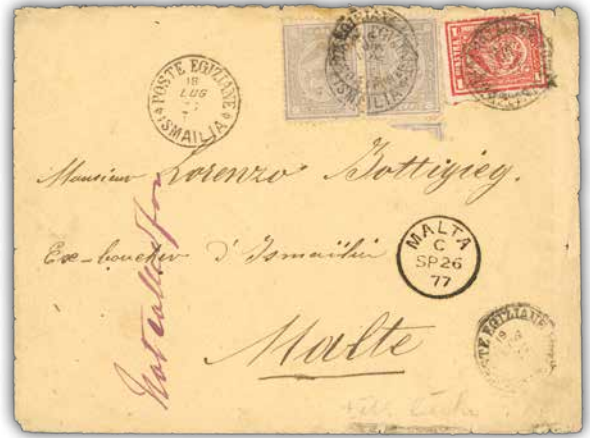 POSTE EGIZIANE
18
LUG
ISMAILIA
Monsieur Lorenzo Bottigieg.
Ex-boucher d'Ismaïlia
MALTA
C
SP 26
77
Malte
Not called for
POSTE EGIZIANE